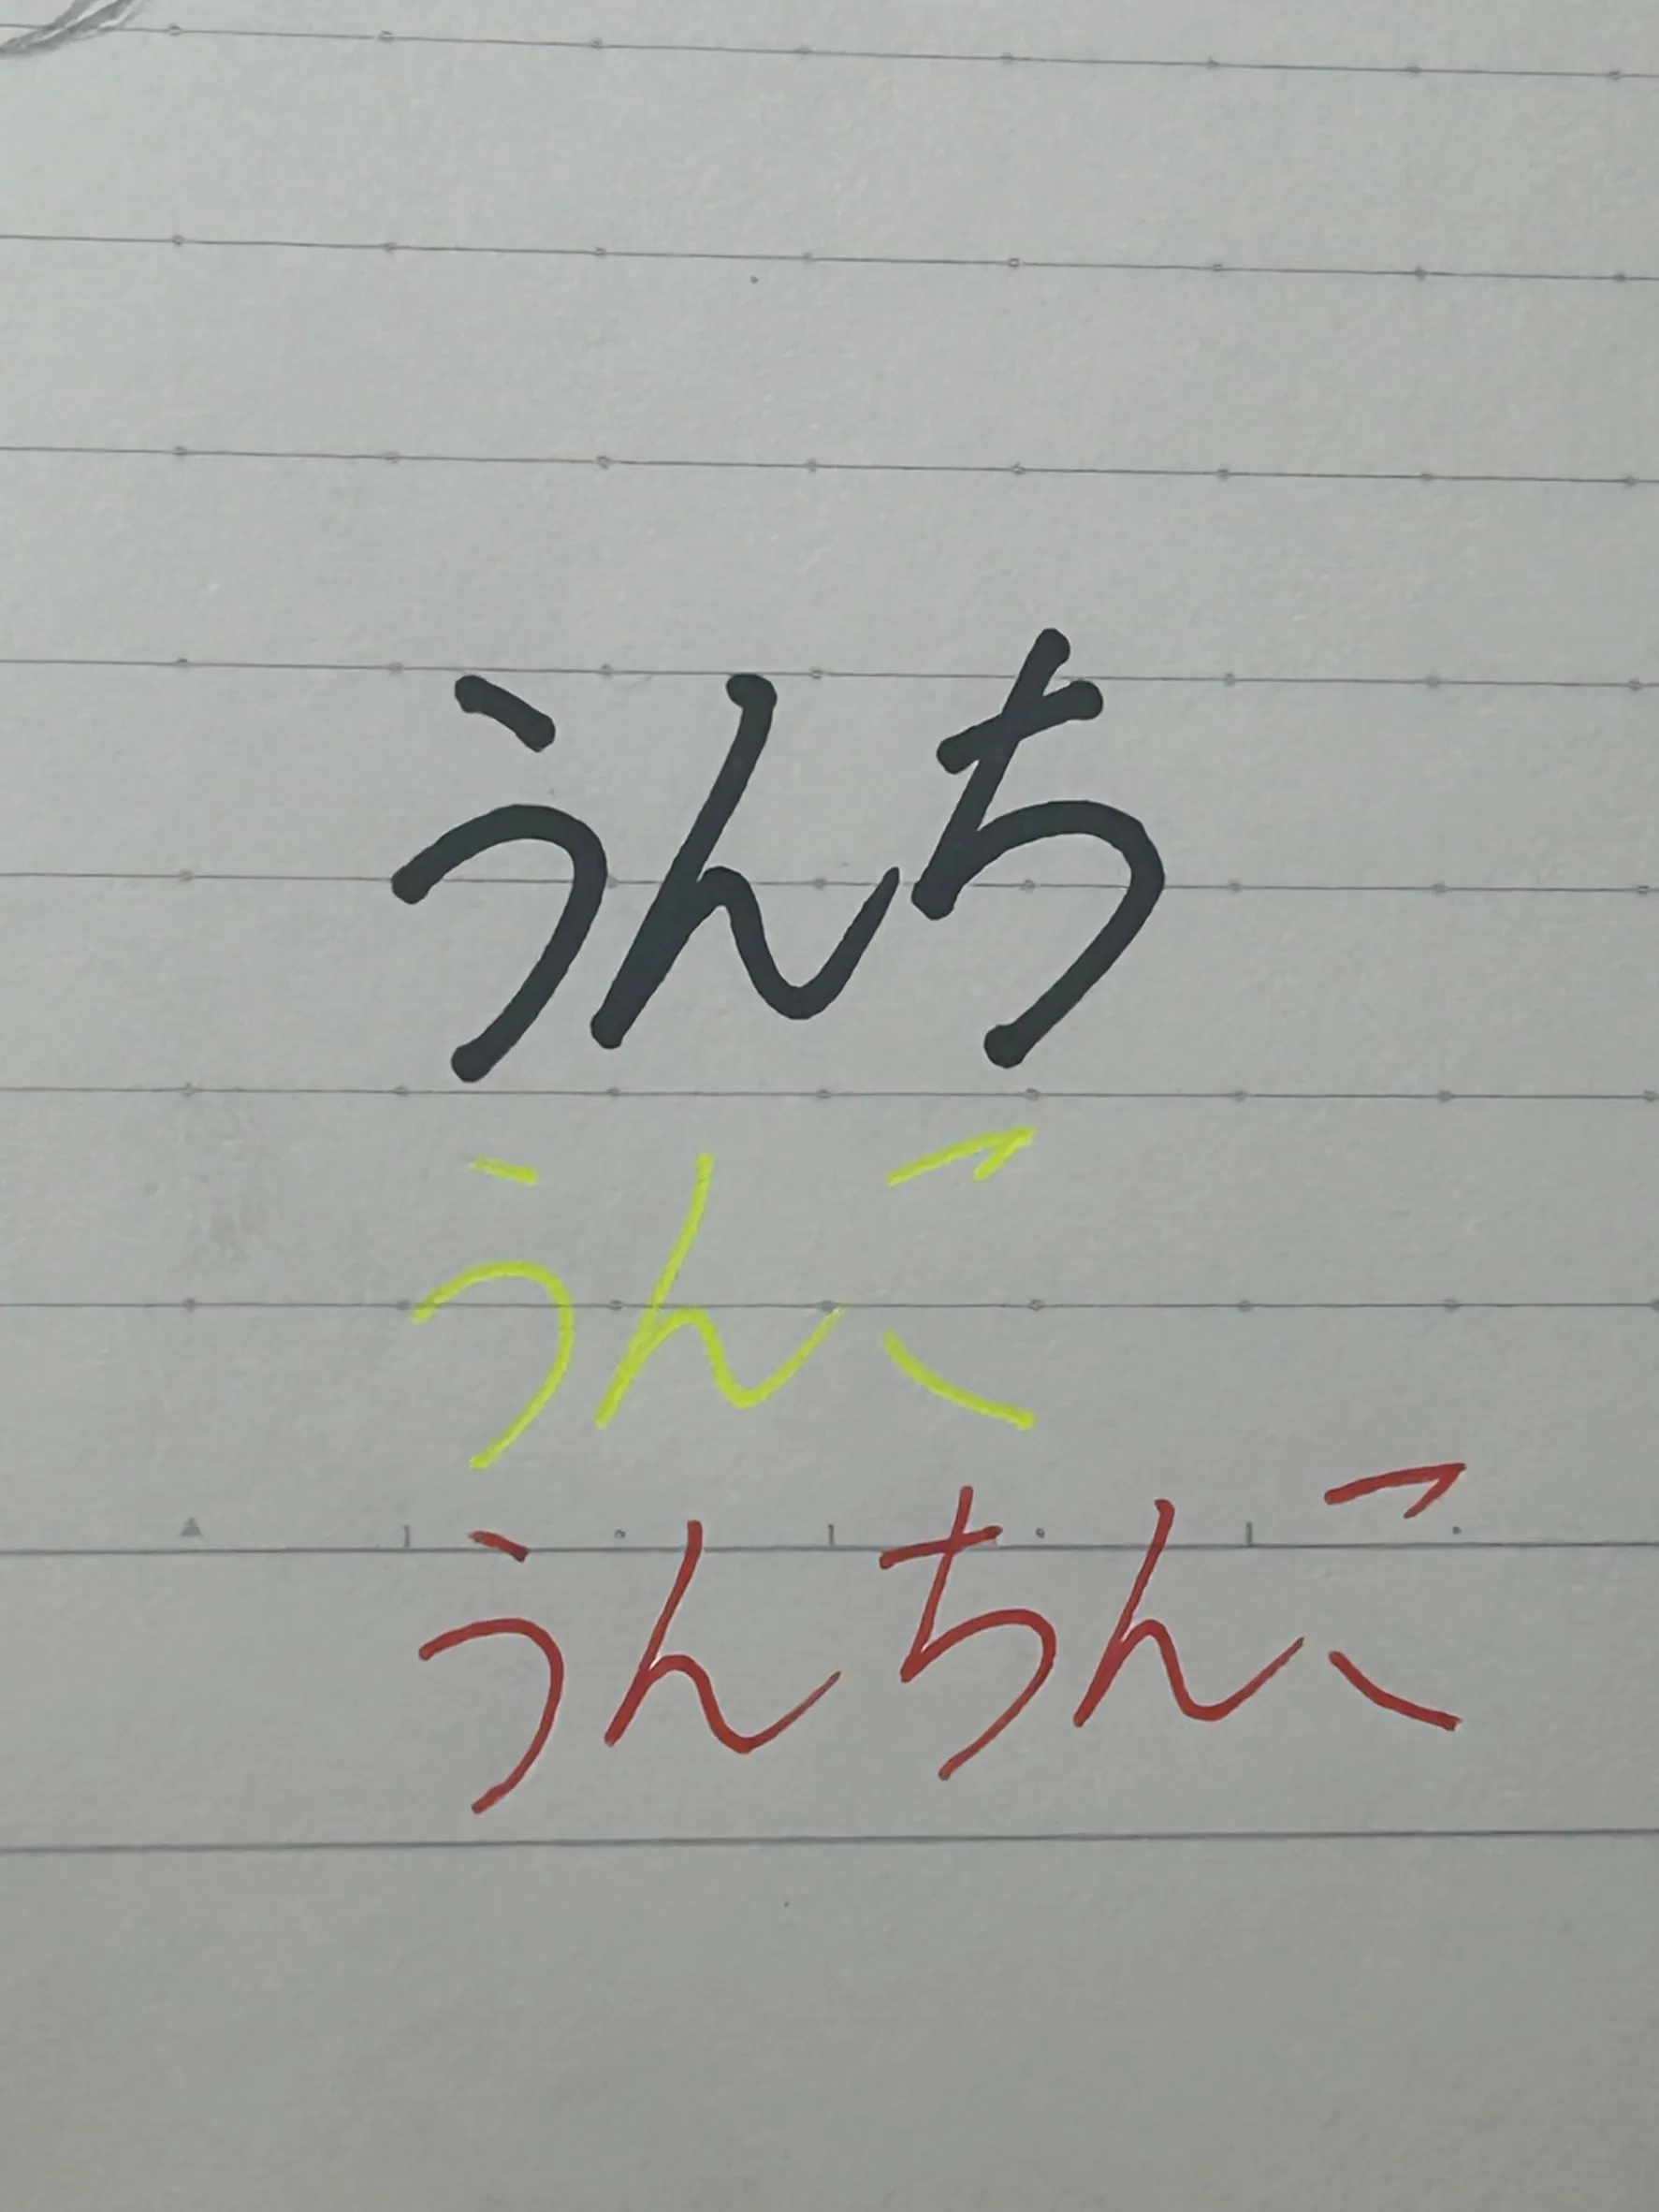 うんち
うんこ
うんちんこ